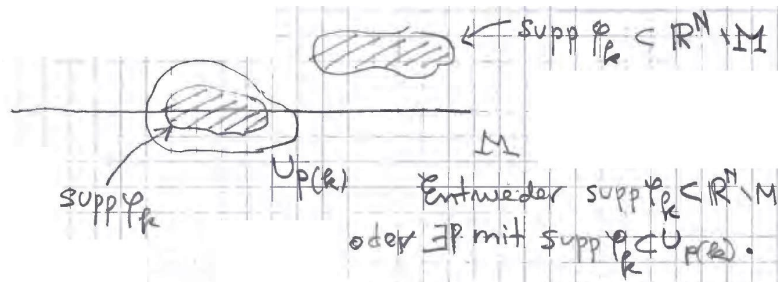 supp φ_k ⊂ ℝ^N \ M
M
U_{p(k)}
supp φ_k
Entweder supp φ_k ⊂ ℝ^N \ M
oder ∃p mit supp φ_k ⊂ U_{p(k)}.